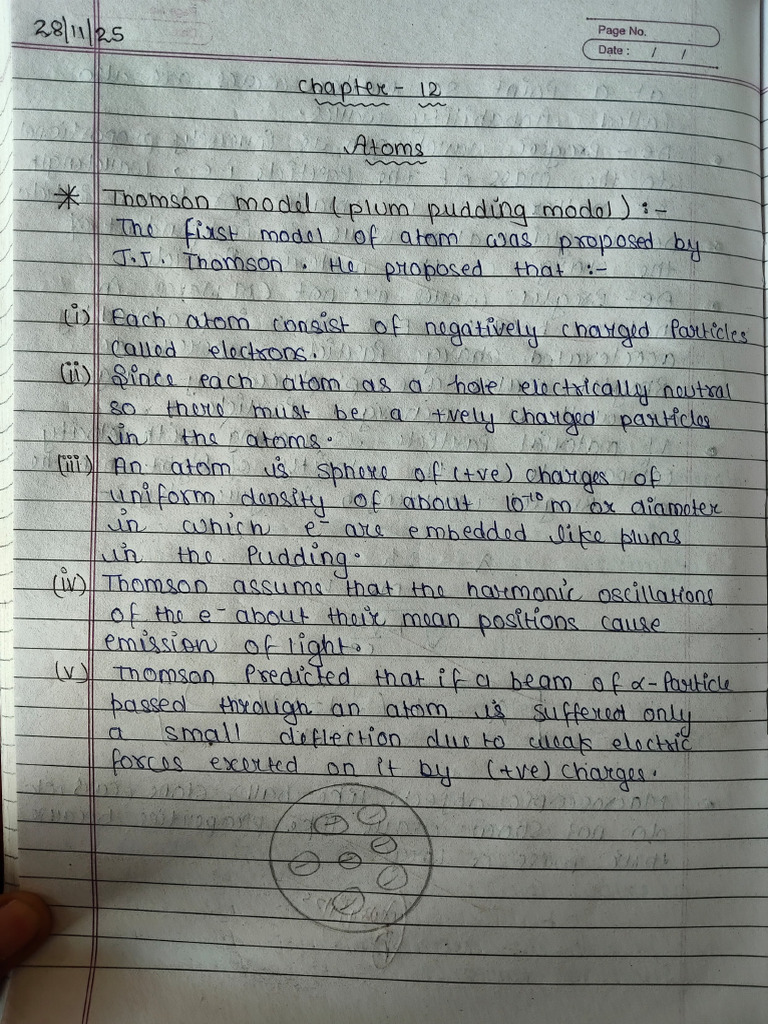 28/11/25
Page No.
Date : / /
Chapter - 12
Atoms
* Thomson model (plum pudding model) :-
The first model of atom was proposed by
J.J. Thomson. He proposed that :-
(i) Each atom consist of negatively charged Particles
called electrons.
(ii) Since each atom as a hole electrically neutral
so there must be a +vely charged particles
in the atoms.
(iii) An atom is sphere of (+ve) charges of
uniform density of about 10⁻¹⁰ m or diameter
in which e⁻ are embedded like plums
in the Pudding.
(iv) Thomson assume that the harmonic oscillations
of the e⁻ about their mean positions cause
emission of light.
(v) Thomson Predicted that if a beam of α-Particle
passed through an atom is suffered only
a small deflection due to weak electric
forces exerted on it by (+ve) charges.